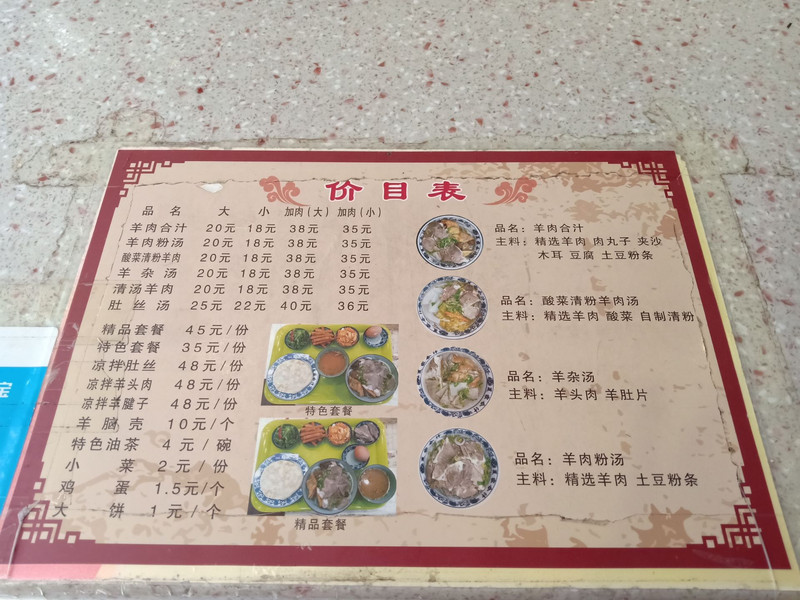 价目表
品 名 大 小 加肉（大） 加肉（小）
羊肉合汁 20元 18元 38元 35元
羊肉粉汤 20元 18元 38元 35元
酸菜清粉羊肉 20元 18元 38元 35元
羊杂汤 20元 18元 38元 35元
清汤羊肉 20元 18元 38元 35元
肚丝汤 25元 22元 40元 36元
精品套餐 45元/份
特色套餐 35元/份
凉拌肚丝 48元/份
凉拌羊头肉 48元/份
凉拌羊腱子 48元/份
羊脑壳 10元/个
特色油茶 4元/碗
小菜 2元/份
鸡蛋 1.5元/个
大饼 1元/个
特色套餐
精品套餐
品名：羊肉合汁
主料：精选羊肉 肉丸子 夹沙
木耳 豆腐 土豆粉条
品名：酸菜清粉羊肉汤
主料：精选羊肉 酸菜 自制清粉
品名：羊杂汤
主料：羊头肉 羊肚片
品名：羊肉粉汤
主料：精选羊肉 土豆粉条
宝